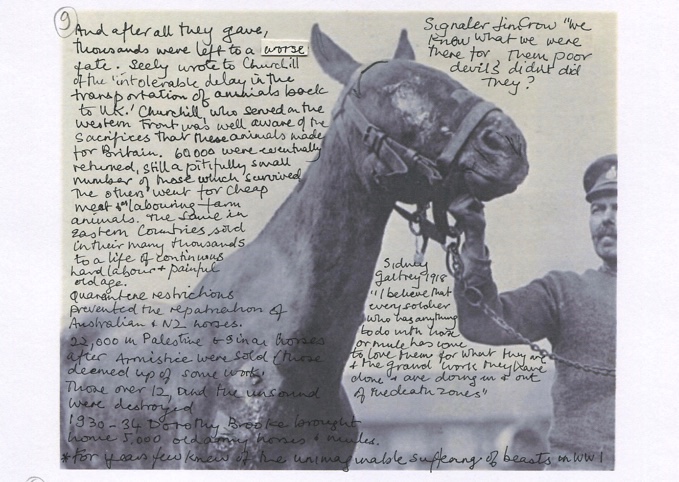 9
And after all they gave,
thousands were left to a worse
fate. Seely wrote to Churchill
of the 'intolerable delay in the
transportation of animals back
to UK.' Churchill, who served on the
western Front was well aware of the
Sacrifices that these animals made
for Britain. 60,000 were eventually
returned, still a pitifully small
number of those which survived
The others went for cheap
meat or labouring farm
animals. The same in
Eastern Countries sold
in their many thousands
to a life of continuous
hard labour + painful
old age.
Quarantene restrictions
prevented the repatriation of
Australian & NZ horses.
22,000 in Palestine & Sinai horses
after Armistice were sold (those
deemed up of some work.
Those over 12, and the unsound
were destroyed
1930-34 Dorothy Brooke brought
home 5,000 old army horses & mules.
*For years few knew of the unimaginable suffering of beasts in WW1
Signaler Jim Crow "We
know what we were
there for Them poor
devils didn't did
They?
Sidney
Galtrey 1918
"I believe that
every soldier
who has anything
to do with horse
or mule has come
to love them for what they are
& the grand work they have
done & are doing in & out
of the death zones"